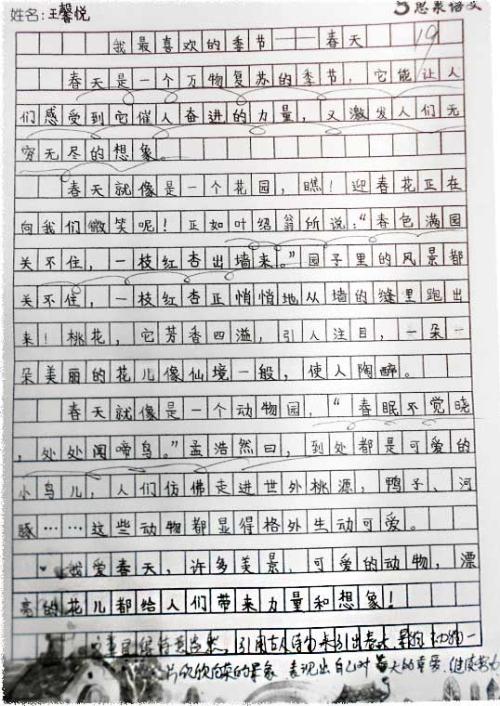 姓名：王馨悦
思泉语文
我最喜欢的季节——春天
19
春天是一个万物复苏的季节，它能让人
们感受到它催人奋进的力量，又激发人们无
穷无尽的想象。
春天就像是一个花园，瞧！迎春花正在
向我们微笑呢！正如叶绍翁所说：“春色满园
关不住，一枝红杏出墙来。”园子里的风景都
关不住，一枝红杏正悄悄地从墙的缝里跑出
来！桃花，它芳香四溢，引人注目，一朵一
朵美丽的花儿像仙境一般，使人陶醉。
春天就像是一个动物园，“春眠不觉晓
，处处闻啼鸟。”孟浩然曰，到处都是可爱的
小鸟儿，人们仿佛走进世外桃源，鸭子、河
豚……这些动物都显得格外生动可爱。
我爱春天，许多美景，可爱的动物，漂
亮的花儿都给人们带来力量和想象！
引用古人诗句来引出春天
片欣欣向荣的景象 表现出自己对春天的喜爱，继续努力